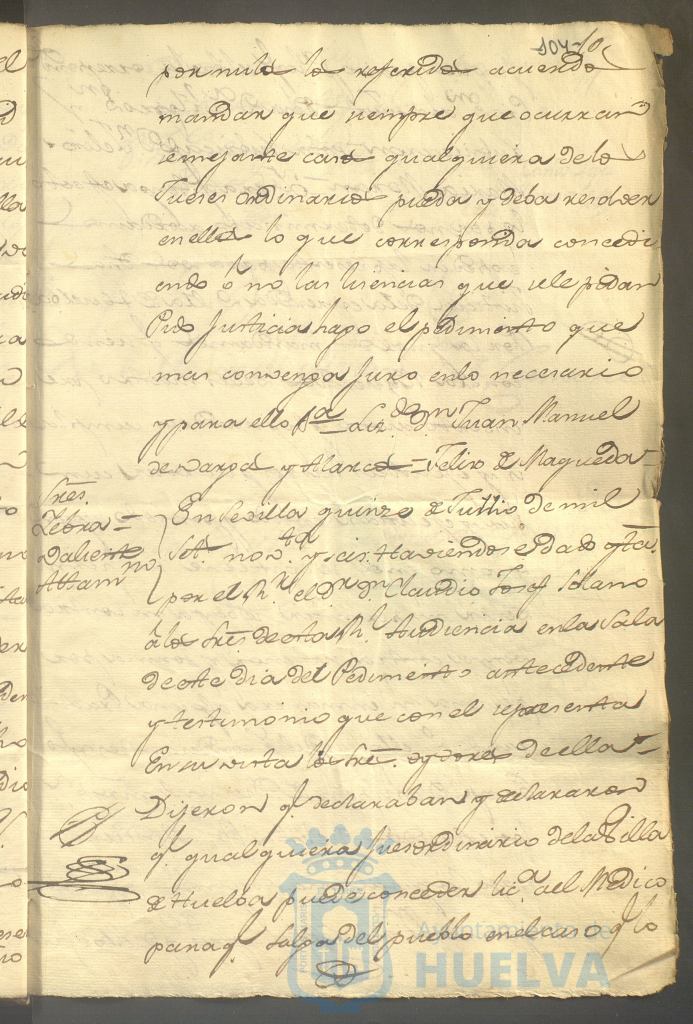 104-10
por nula la referida acuerdo
mandar que siempre que ocurran
semejante caso qualquiera de los
Jueses ordinarios pueda y deba resolver
en ellos lo que corresponda concedi
endo o no las lisencias que se le pidan
Pido Justicia hago el pedimento que
mas convenga Juro en lo necesario
y para ello Lizdo Dn Juan Manuel
de Vargas y Alarcon = Felix de Maqueda =
Sres.
Zebra =
Valiente
En Sevilla quinze de Jullio de mil
Setos nov.ta y seis Haviendose dado qta.
por el Rl el Dr Dn Claudio Josef Solano
a los Sres de esta Rl Audiencia en la Sala
de este dia del Pedimento antecedente
y testimonio que con el representa
En su vista los Sres. oydores de ella =
Dijeron q. declaraban y declararon
q. qualquiera Jues ordinario de la Billa
de Huelba puede conceder lica al Medico
para q. salga del pueblo en el caso q. lo
Ayuntamiento de
HUELVA